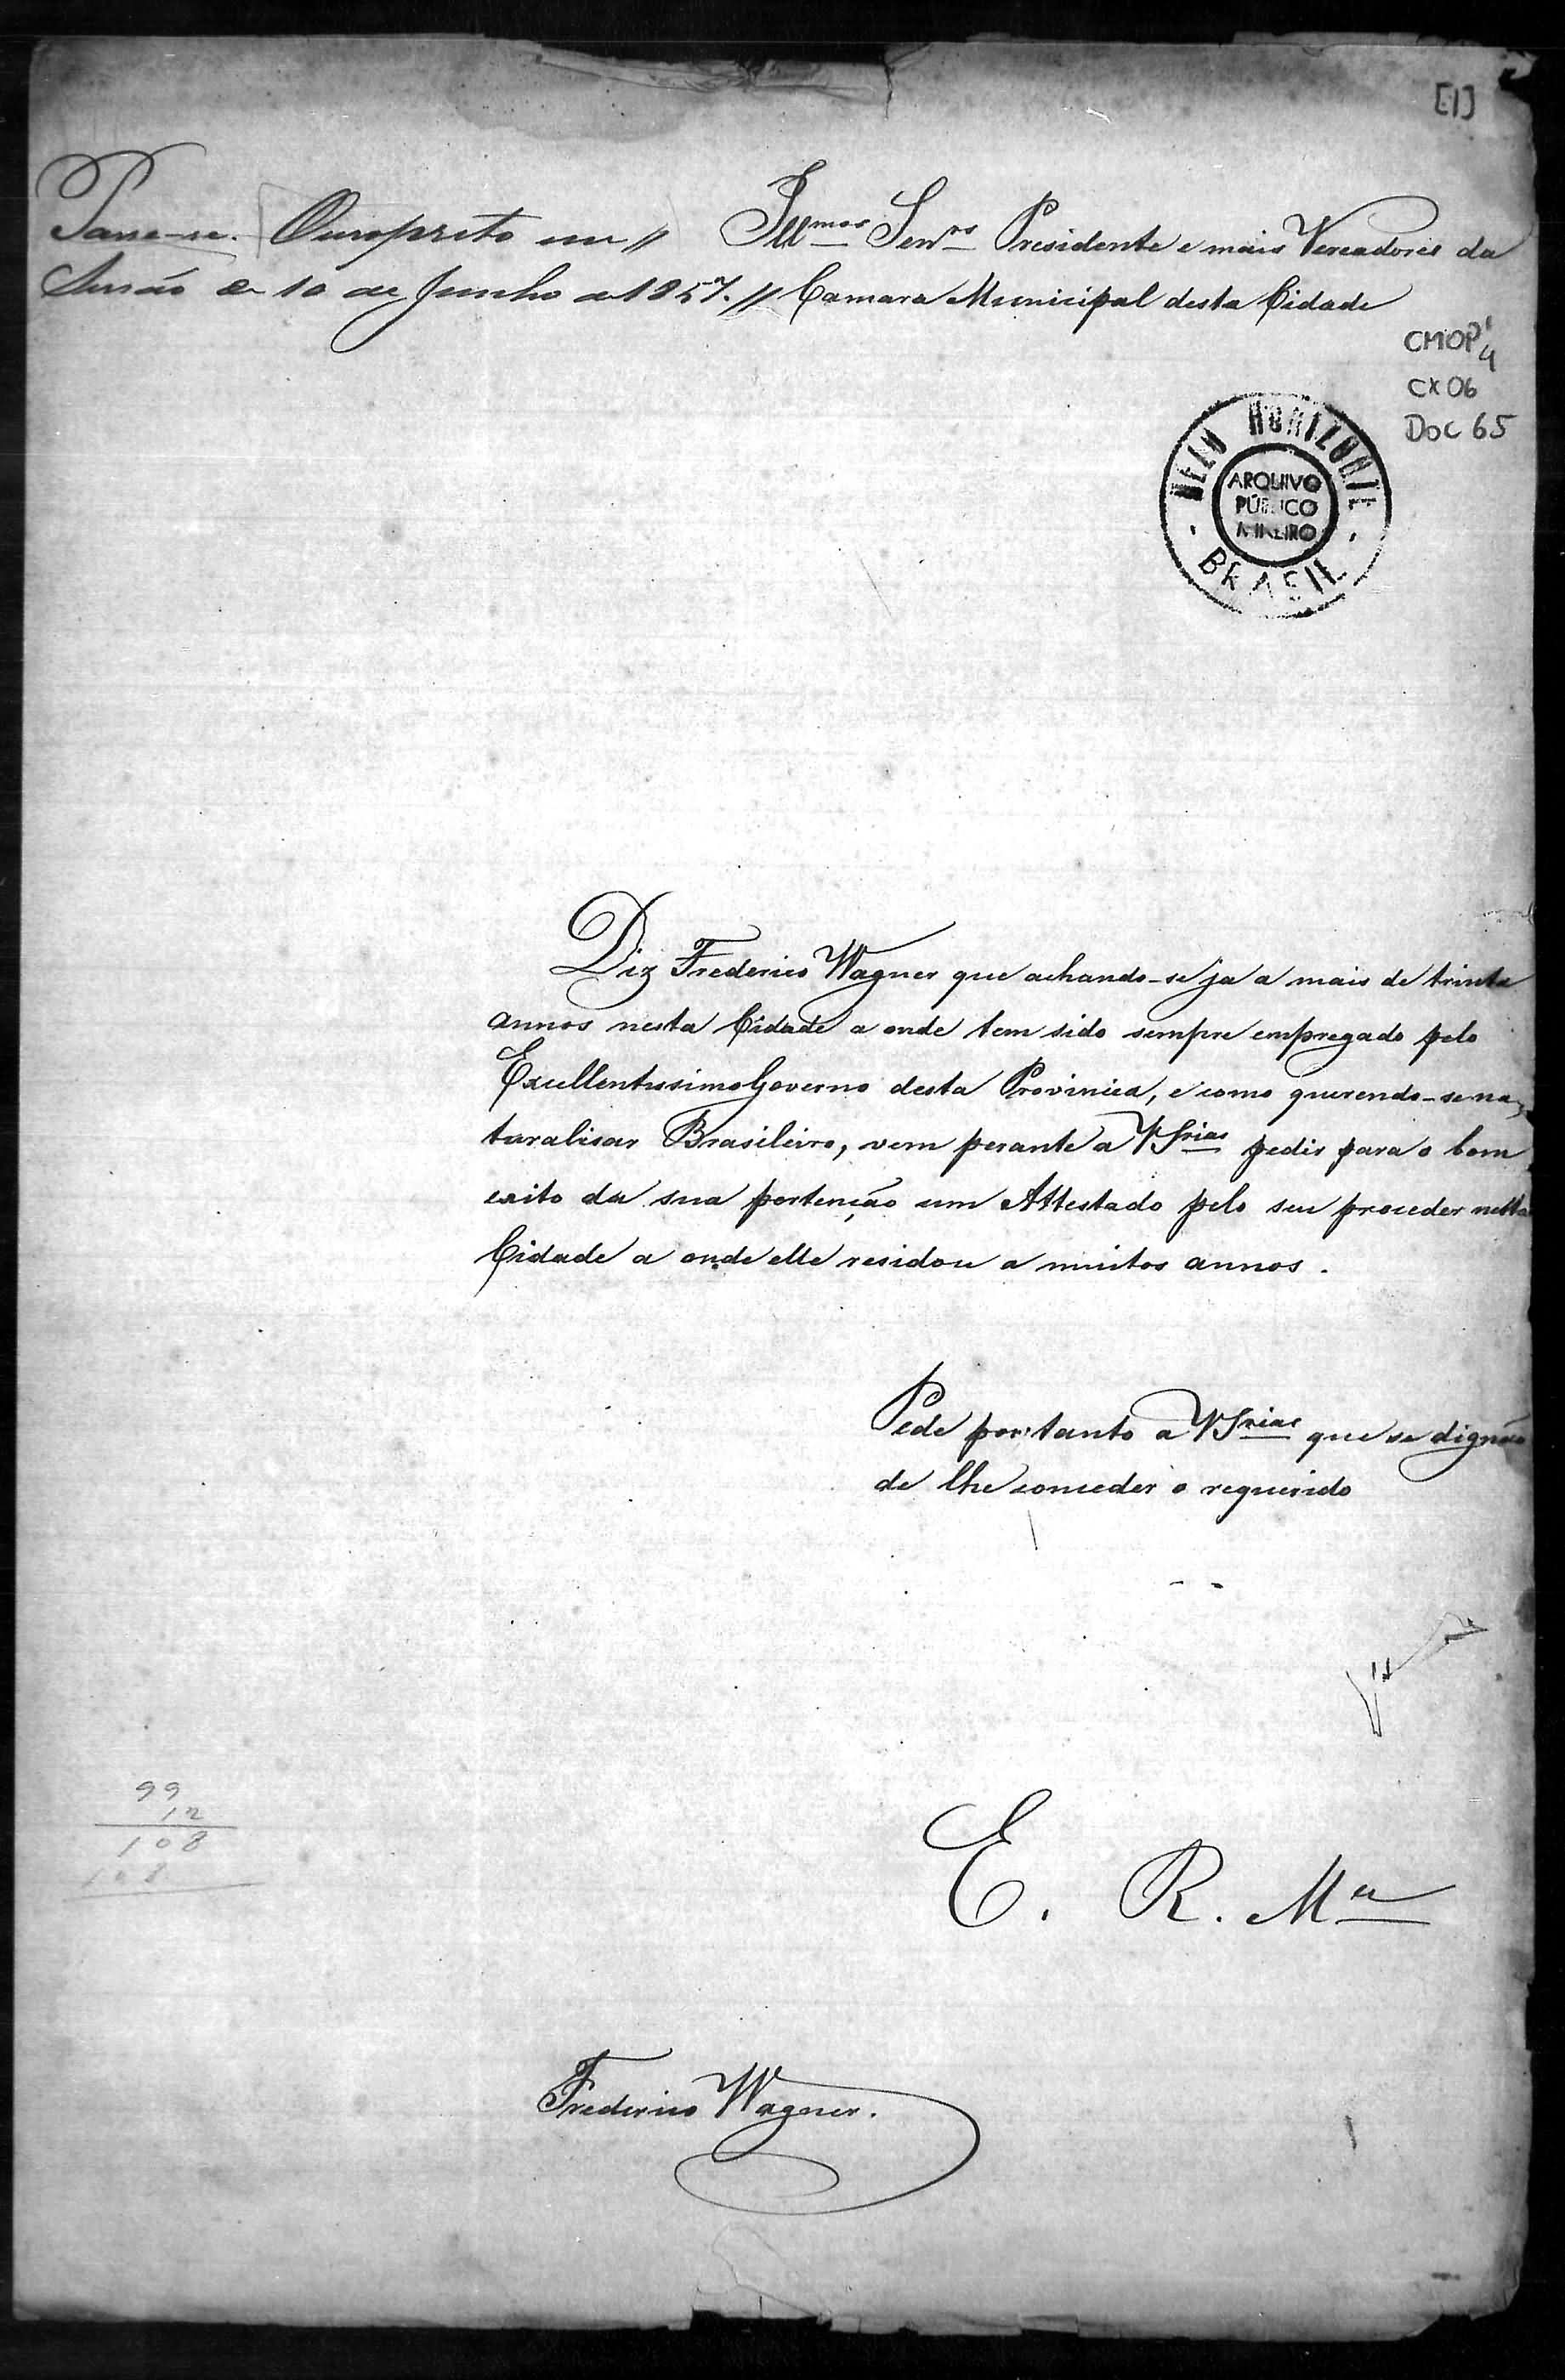 [1]
Passe-se. Ouropreto em //
Sessão de 10 de Junho de 1857. //
Illmos Senrs Presidente e mais Vereadores da
Camara Municipal desta Cidade
CMOP 1
4
CX 06
DOC 65
BELO HORIZONTE
ARQUIVO
PÚBLICO
MINEIRO
BRASIL
Diz Frederico Wagner que achando-se ja a mais de trinta
annos nesta Cidade a onde tem sido sempre empregado pelo
Excellentissimo Governo desta Provincia, e como querendo-se na
turalisar Brasileiro, vem perante a VSrias pedir para o bom
exito da sua pertenção um Attestado pelo seu proceder nesta
Cidade a onde elle residou a muitos annos.
Pede por tanto a VSrias que se dignão
de lhe conceder o requerido
E. R. Mce
99
12
108
108
Frederico Wagner.